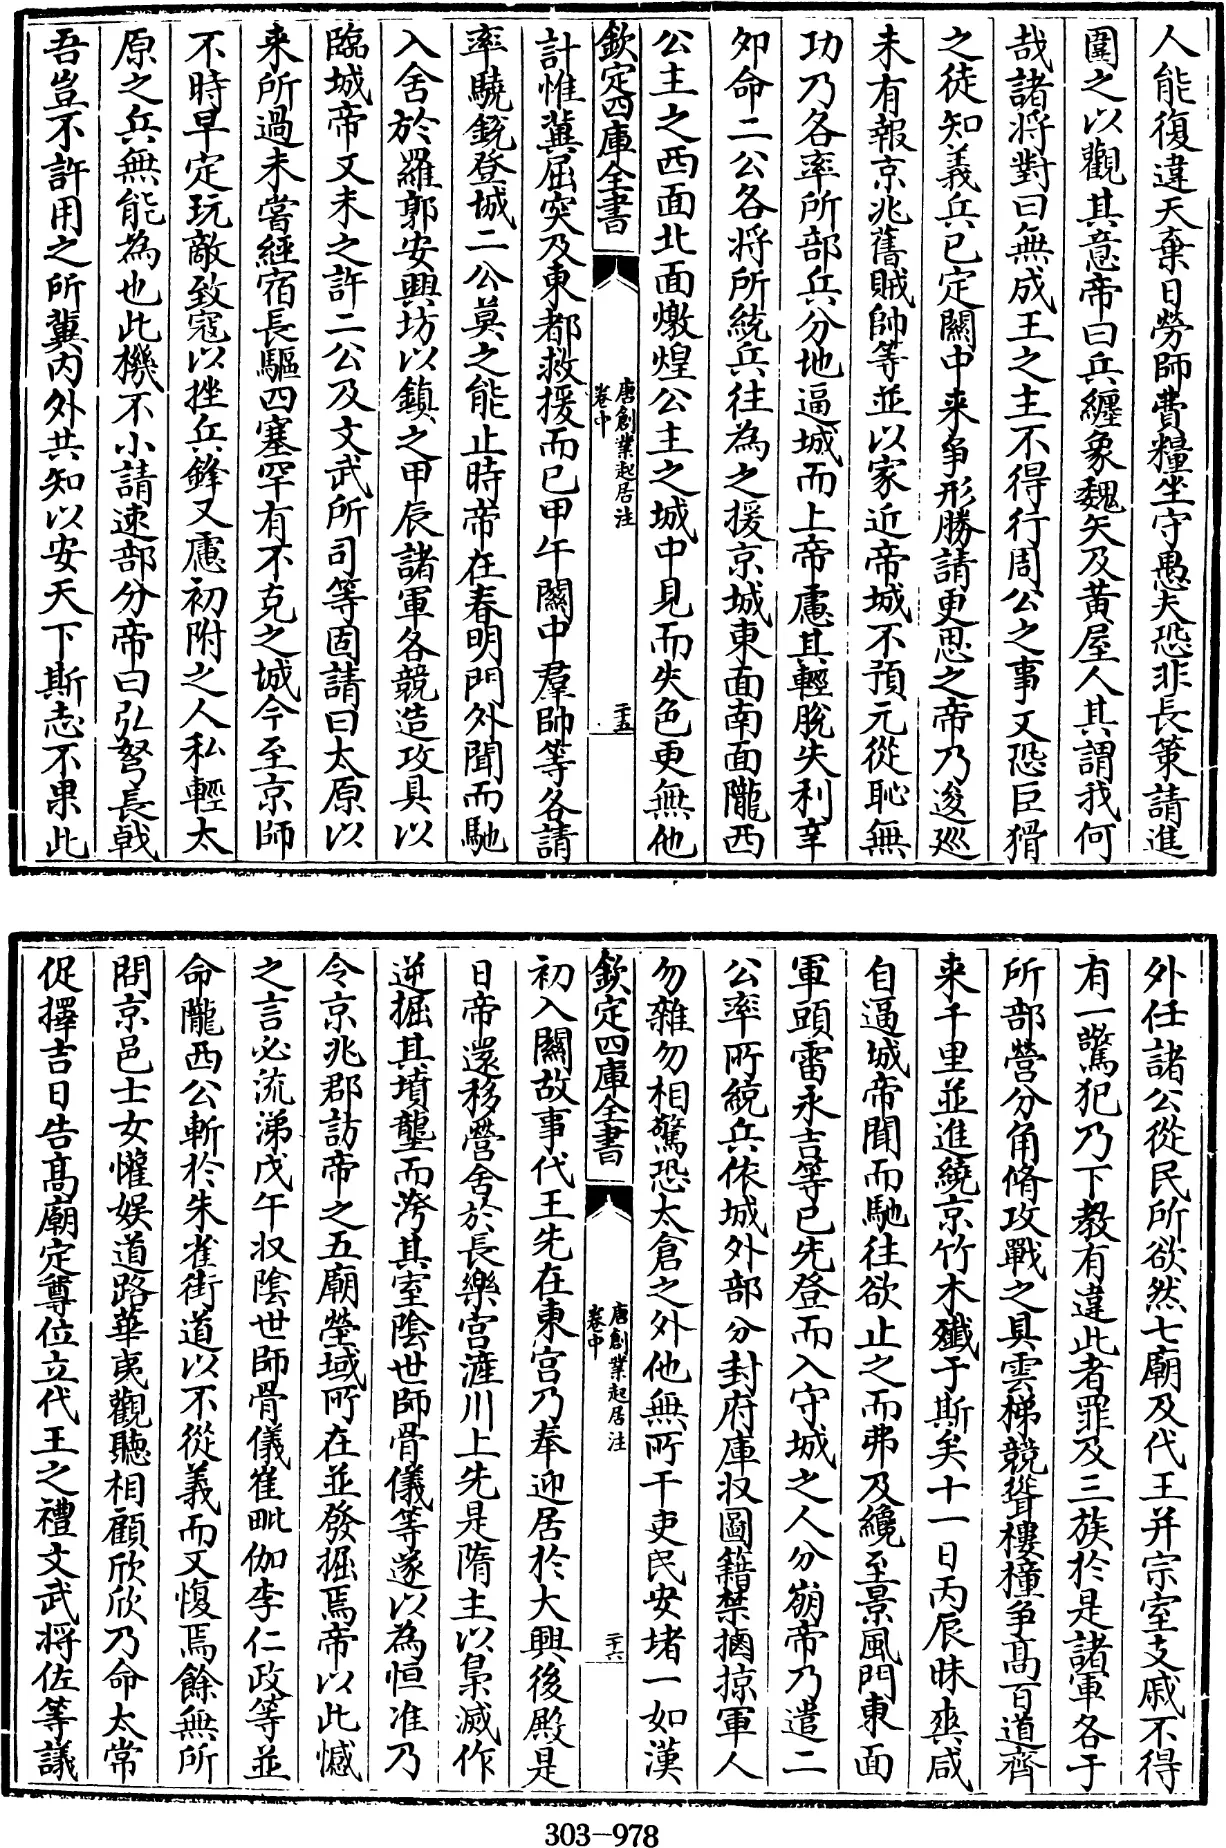 人能復違天棄日勞師費糧坐守愚夫恐非長策請進
圍之以觀其意帝曰兵纏象魏矢及黄屋人其謂我何
哉諸將對曰無成王之主不得行周公之事又恐巨猾
之徒知義兵已定關中来争形勝請更思之帝乃逡廵
未有報京兆舊賊帥等並以家近帝城不預元從恥無
功乃各率所部兵分地逼城而上帝慮其輕脫失利辛
夘命二公各將所統兵往為之援京城東面南面隴西
公主之西面北面燉煌公主之城中見而失色更無他
欽定四庫全書
唐創業起居注
卷中
二十五
計惟冀屈突及東都救援而已甲午關中羣帥等各請
率驍銳登城二公莫之能止時帝在春明門外聞而馳
入舍於羅郭安興坊以鎮之甲辰諸軍各競造攻具以
臨城帝又未之許二公及文武所司等固請曰太原以
来所過未嘗經宿長驅四塞罕有不克之城今至京師
不時早定玩敵致寇以挫兵鋒又慮初附之人私輕太
原之兵無能為也此機不小請速部分帝曰弘弩長戟
吾豈不許用之所冀内外共知以安天下斯志不果此
外任諸公從民所欲然七廟及代王并宗室支戚不得
有一驚犯乃下教有違此者罪及三族於是諸軍各于
所部營分角脩攻戰之具雲梯競聳樓橦争高百道齊
来千里並進繞京竹木殲于斯矣十一日丙辰昧爽咸
自逼城帝聞而馳往欲止之而弗及纔至景風門東面
軍頭雷永吉等已先登而入守城之人分崩帝乃遣二
公率所統兵依城外部分封府庫収圖籍禁擄掠軍人
勿雜勿相驚恐太倉之外他無所干吏民安堵一如漢
欽定四庫全書
唐創業起居注
卷中
二十六
初入關故事代王先在東宫乃奉迎居於大興後殿是
日帝還移營舍於長樂宫滻川上先是隋主以梟滅作
逆掘其墳壟而洿其室隂世師骨儀等遂以為恒准乃
令京兆郡訪帝之五廟塋域所在並發掘焉帝以此憾
之言必流涕戊午収隂世師骨儀崔毗伽李仁政等並
命隴西公斬於朱雀街道以不從義而又愎焉餘無所
問京邑士女懽娱道路華夷觀聽相顧欣欣乃命太常
促擇吉日告高廟定尊位立代王之禮文武將佐等議
303-978